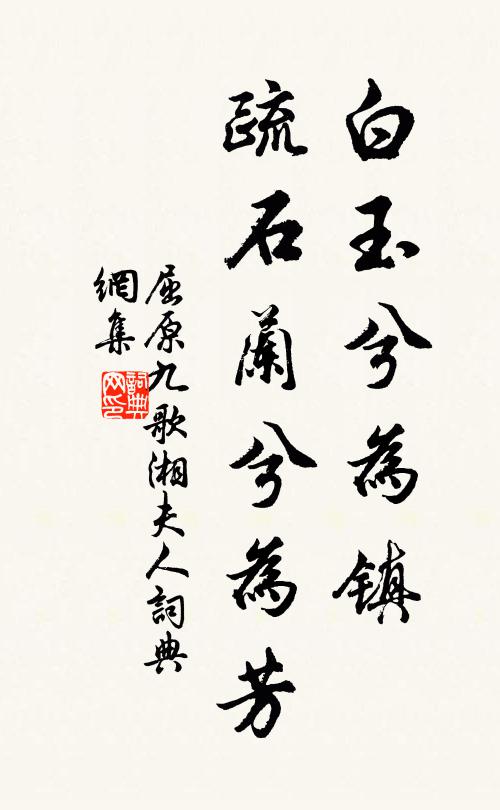 白玉兮為镇
疏石蘭兮為芳
屈原九歌湘夫人詞典
網集
詞典
网印